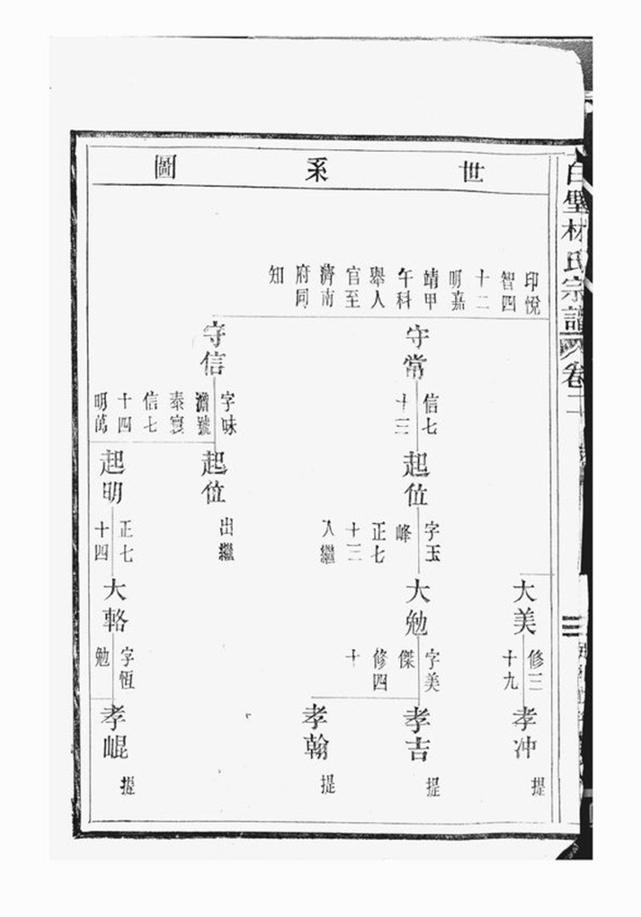 世系圖
白壁林氏宗譜 卷二
印悅
智四
十二
明嘉
靖甲
午科
舉人
官至
濟南
府同
知
守常
信七
十三
守信
字味
澹號
泰寰
信七
十四
明萬
起位
字玉
峰
正七
十三
入繼
起位
出繼
起明
正七
十四
大美
修三
十九
大勉
字美
傑
修四
十
大輅
字恆
勉
孝冲
提
孝吉
提
孝翰
提
孝崐
提